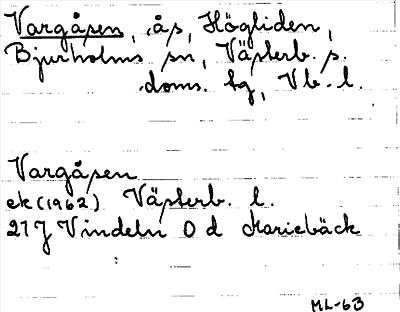 Vargåsen, ås, Högliden,
Bjurholms sn, Västerb. s.
doms. tg, Vb. l.
Vargåsen
ek (1962) Västerb. l.
21J Vindeln 0 d Mariebäck
ML-63